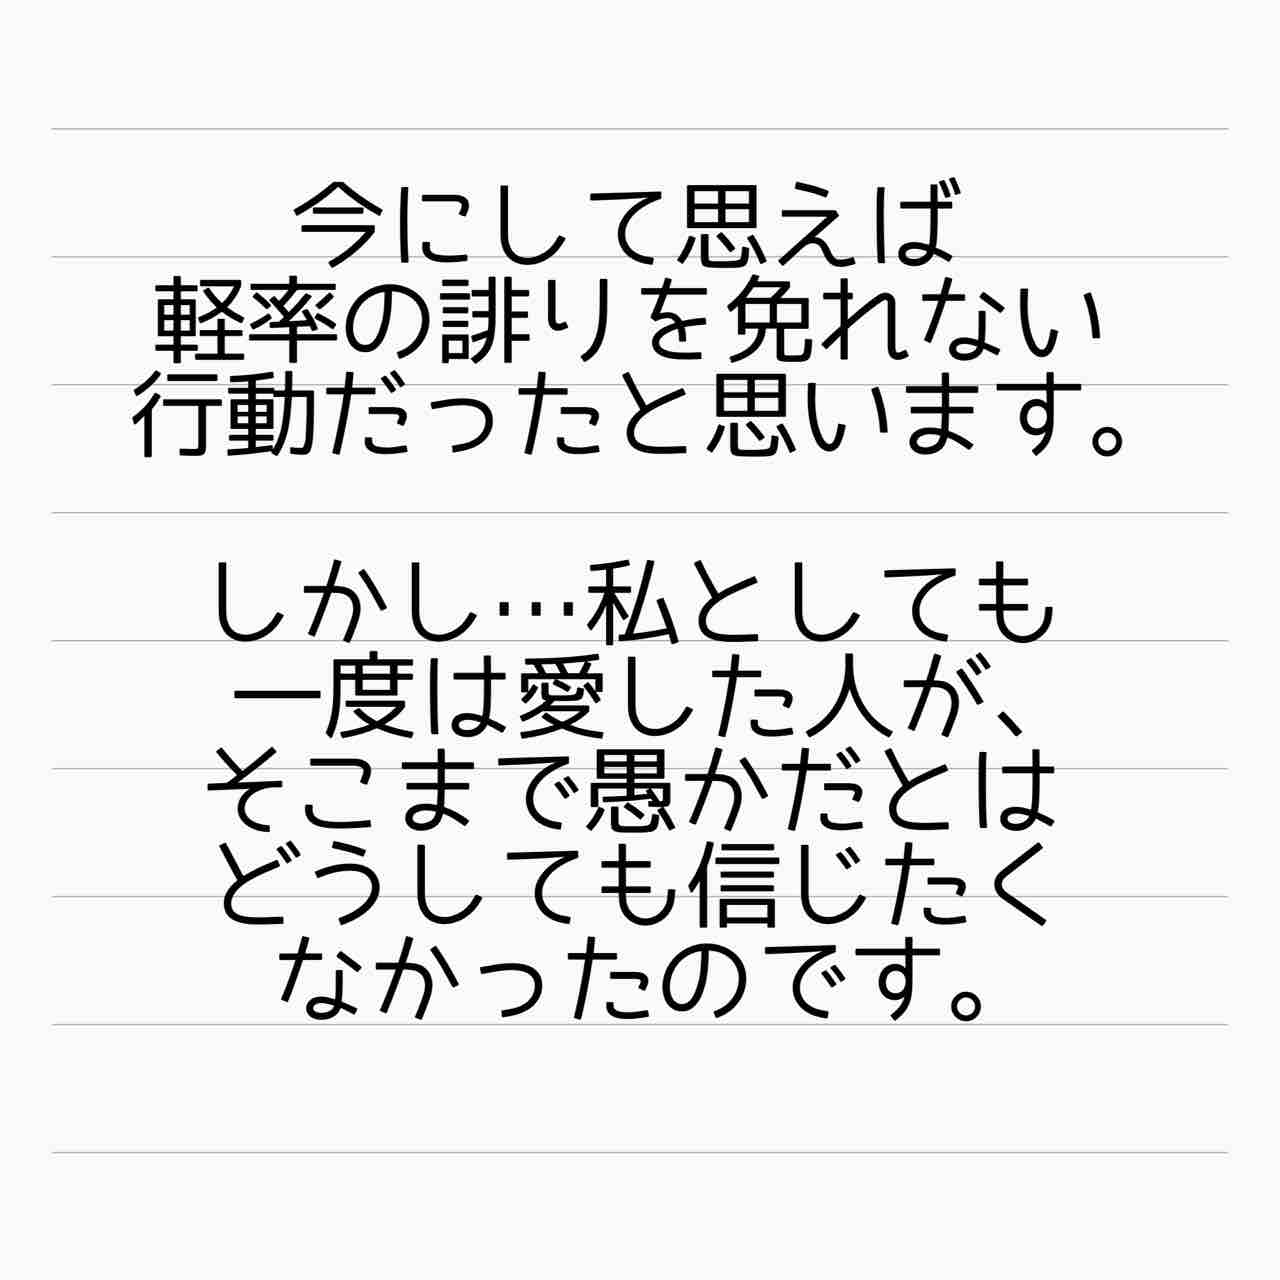 今にして思えば
軽率の誹りを免れない
行動だったと思います。
しかし…私としても
一度は愛した人が、
そこまで愚かだとは
どうしても信じたく
なかったのです。